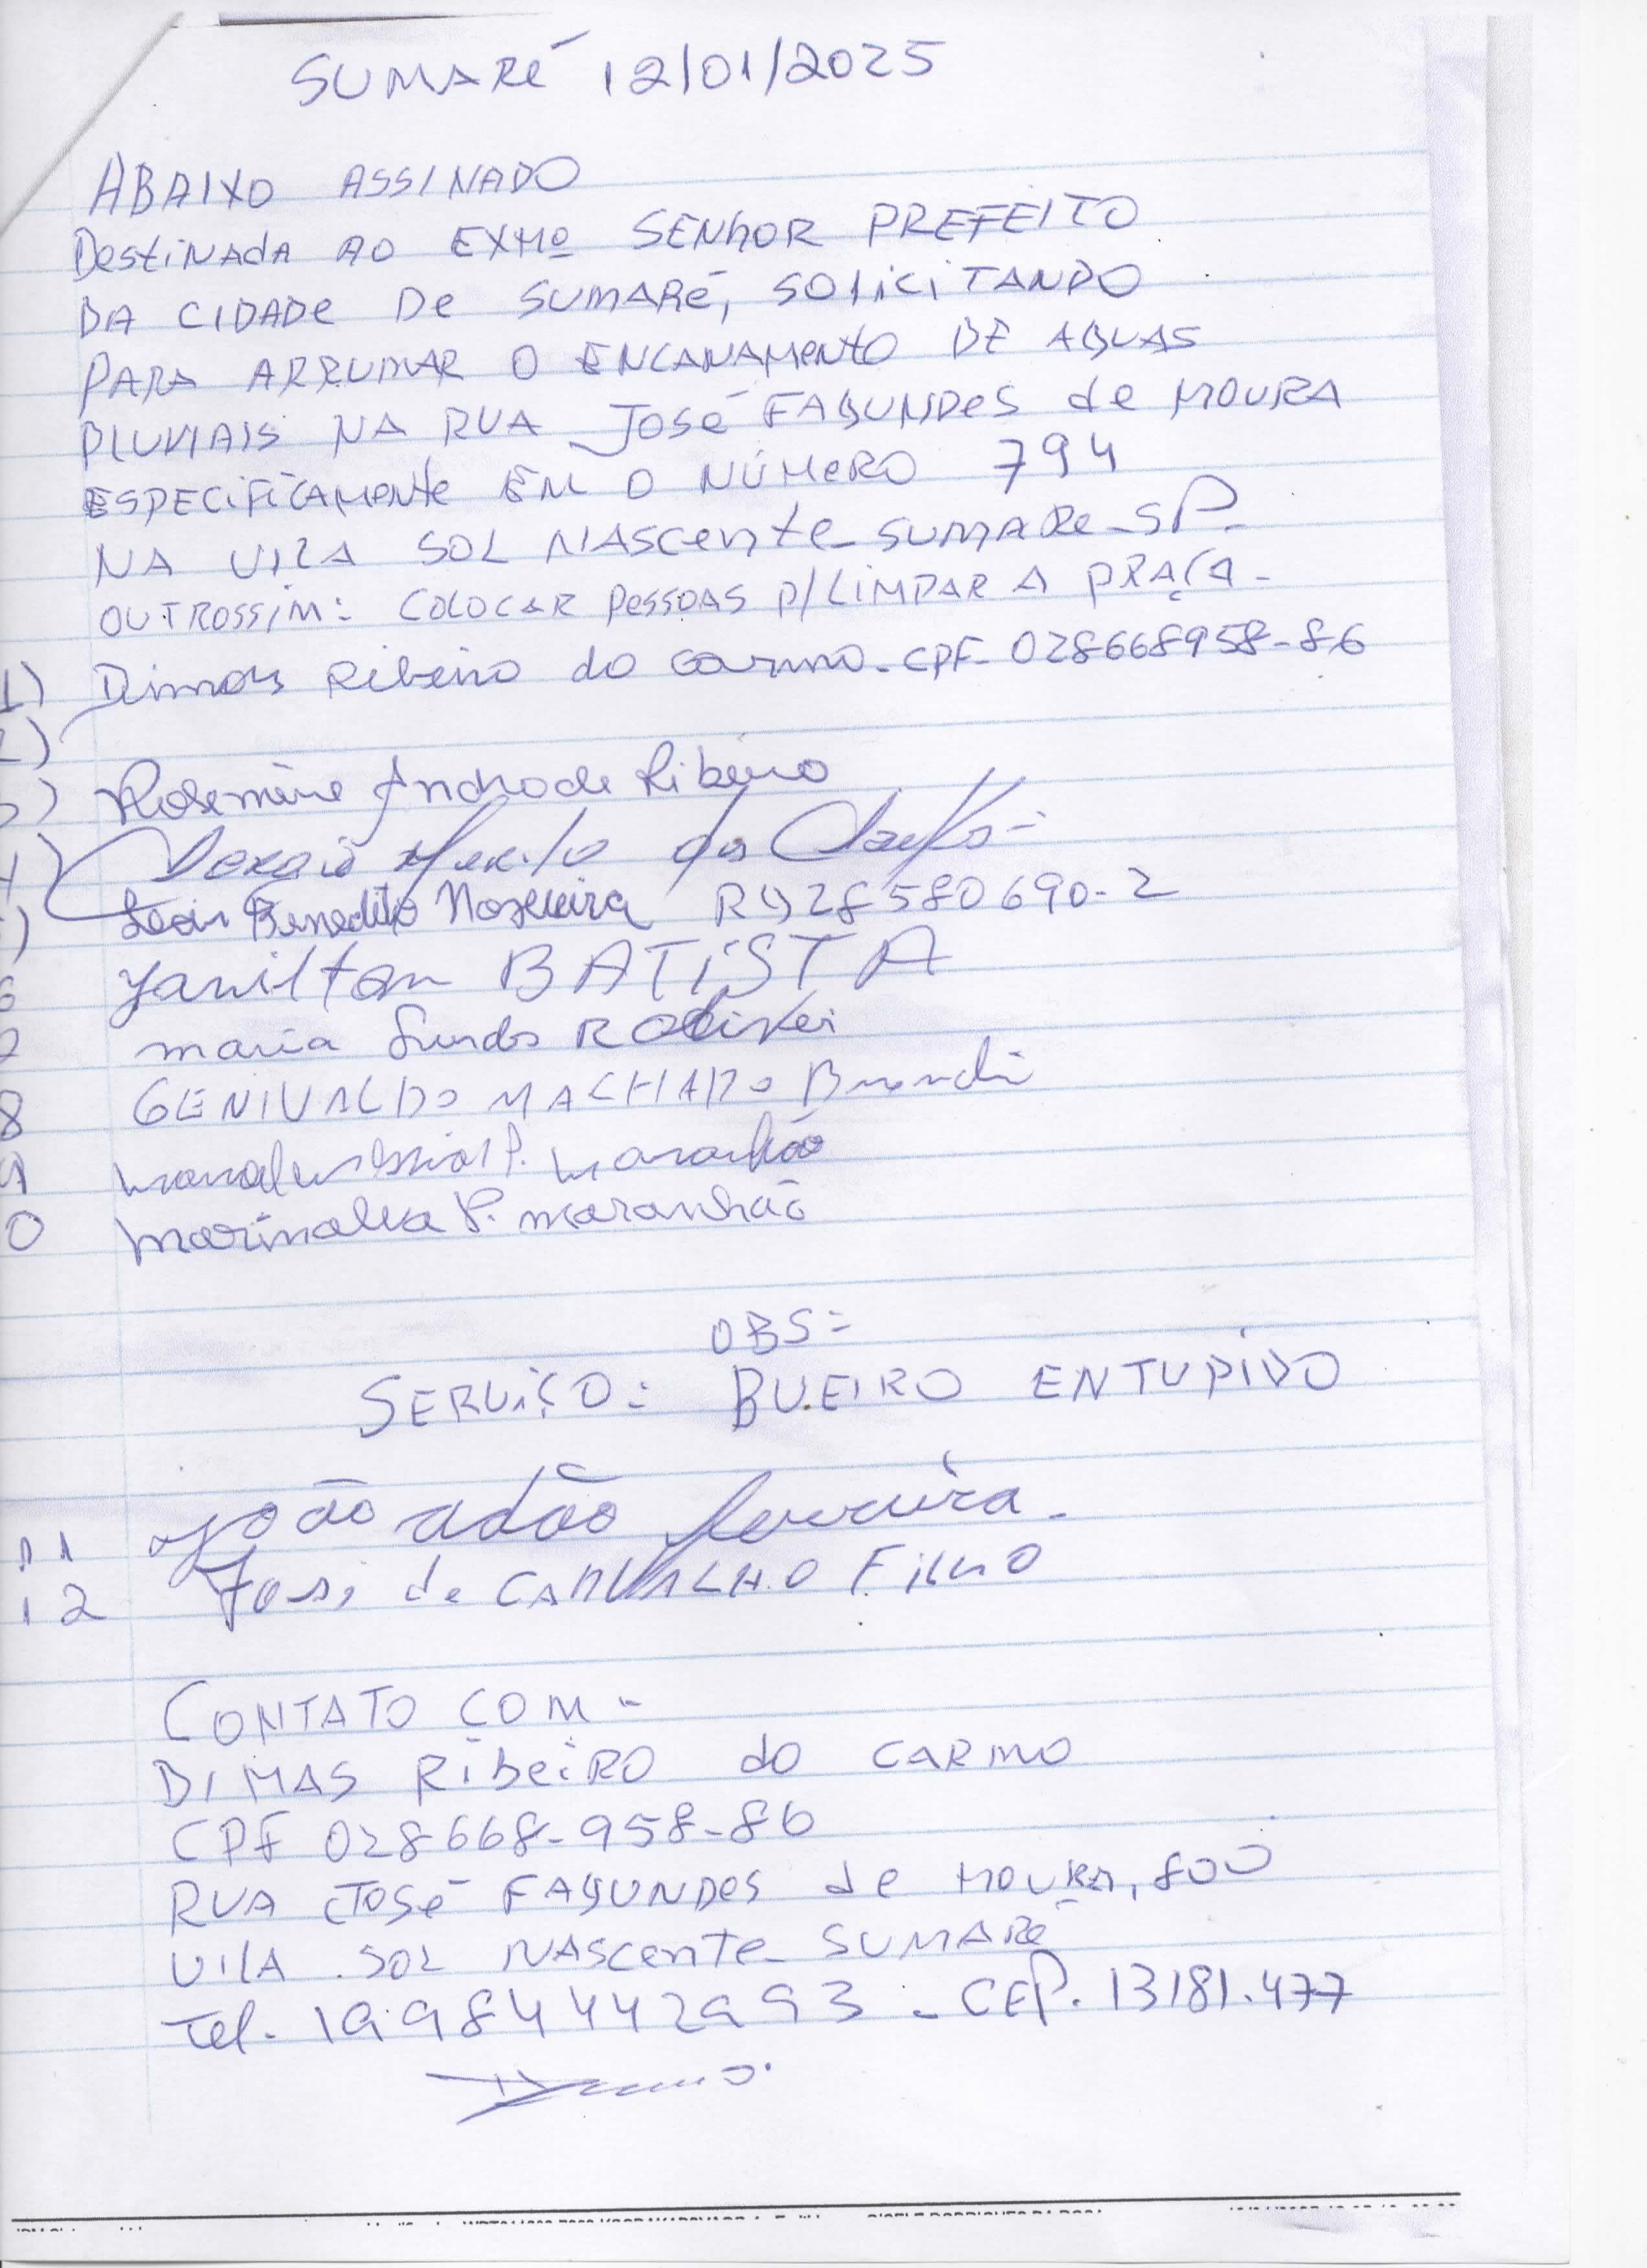 SUMARÉ 12/01/2025
ABAIXO ASSINADO
DestiNAdA AO EXMº SENhOR PREFEITO
DA CIDADE De SUMARÉ, SOliCITANDO
PARA ARRUMAR O ENCANAMENTO DE AGUAS
PLUVIAIS NA RUA JOSÉ FAGUNDES de MOURA
ESPECIFICAMENTE EM O NÚMERO 794
NA VILA SOL NASCente - SUMARE - SP.
OUTROSSIM: COLOCAR PESSOAS P/ LIMPAR A PRAÇA -
1) Dimas Ribeiro do Carmo - CPF - 028668958-86
2)
3) Rosemeire Andrade Ribeiro
4 Sergio Murilo dos
5) Benedito Nogueira RG 28580690-2
6 BATISTA
7 maria
8 GENIVALDO MACHADO
9 P. Maranhão
0 Marinalva P. Maranhão
OBS =
SERVIÇO: BUEIRO ENTUPIDO
11 João Adão Ferreira.
12 José de CARVALHO FILHO
CONTATO COM -
DIMAS RibeiRO do CARMO
CPF 028668-958-86
RUA JOSÉ FAGUNDES de MOURA, 800
VILA SOL NASCente - SUMARÉ
Tel. 19 984442993 - CEP. 13181.477